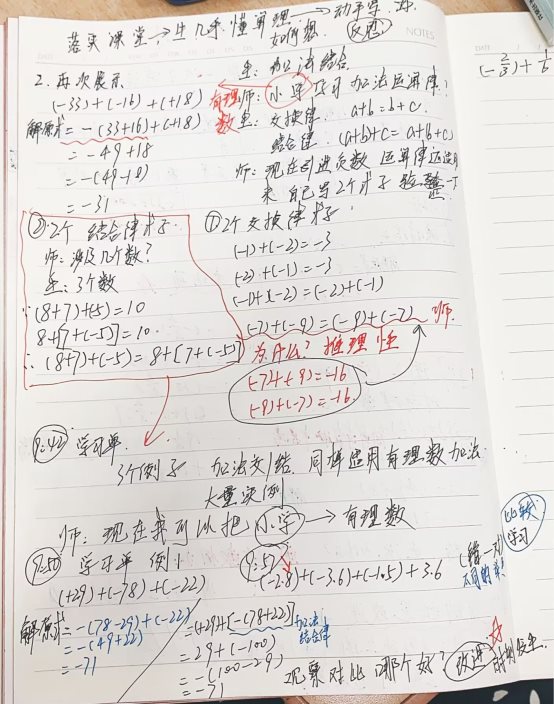 落实课堂→生几乎懂算理→动手写
如何想 反思
NOTES
2.再次展示
生:加法结合
(-33)+(-16)+(+18)
有理数
师:小学学习 加法运算律?
解原式=-(33+16)+(+18)
生:交换律 a+b=b+c.
=-49+18
结合律.(a+b)+c=a+(b+c)
=-(49-18)
师:现在引进负数 运算律还适用
=-31
来自己写2个式子验证一下
②2个 结合律式子
师:涉及几个数?
生:3个数
∵(8+7)+(-5)=10
8+[7+(-5)]=10
∴(8+7)+(-5)=8+[7+(-5)]
①2个交换律式子
(-1)+(-2)=-3
(-2)+(-1)=-3
(-1)+(-2)=(-2)+(-1)
(-7)+(-9)=(-9)+(-7) 师.
为什么?推理性
(-7)+(-9)=-16
(-9)+(-7)=-16
9:42 学习单
3个例子 加法交/结.同样适用有理数加法.
大量实例
师:现在我可以把小学→有理数
9:50 学习单 例1
(+29)+(-78)+(-22)
解:原式=-(78-29)+(-22)
=-(49+22)
=-71
=(+29)+[-(78+22)] 加法结合律
=29+(-100)
=-(100-29)
=-71
9:57
(-2.8)+(-3.6)+(-1.5)+3.6
比较学习
观察对比 哪个好? 改进
(-2/3)+1/6